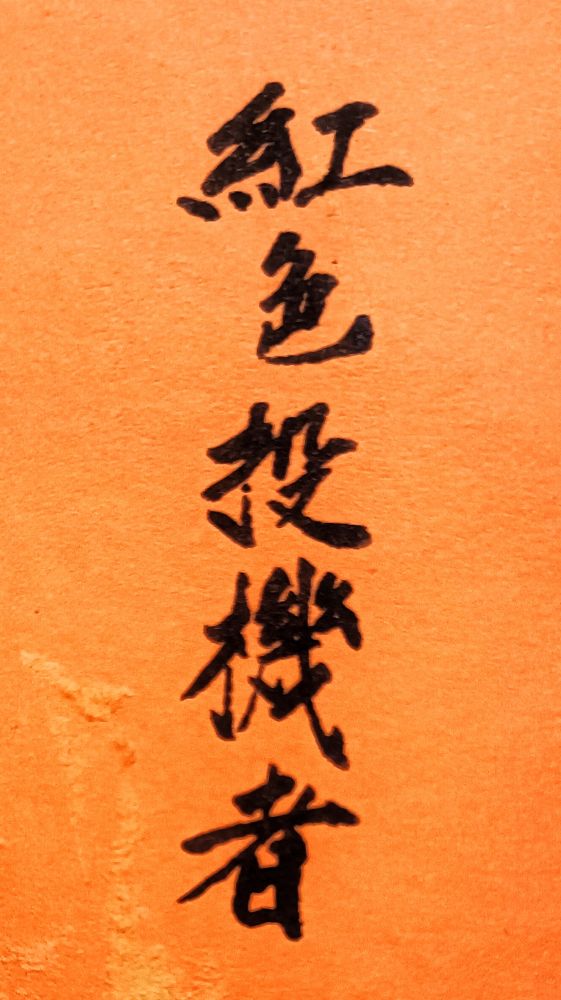 紅色投機者